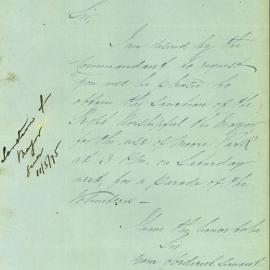 Sir
I am desired by the
Commandant to request
you will be pleased to
obtain the Sanction of the
Right Worshipful the Mayor
for the use of Moore Park
at 3 P.m. on Saturday
next, for a parade of the
Volunteers —
I have the honor to be
Sir
Your Obedient Servant
Sanction of
Mayor
11/5/75